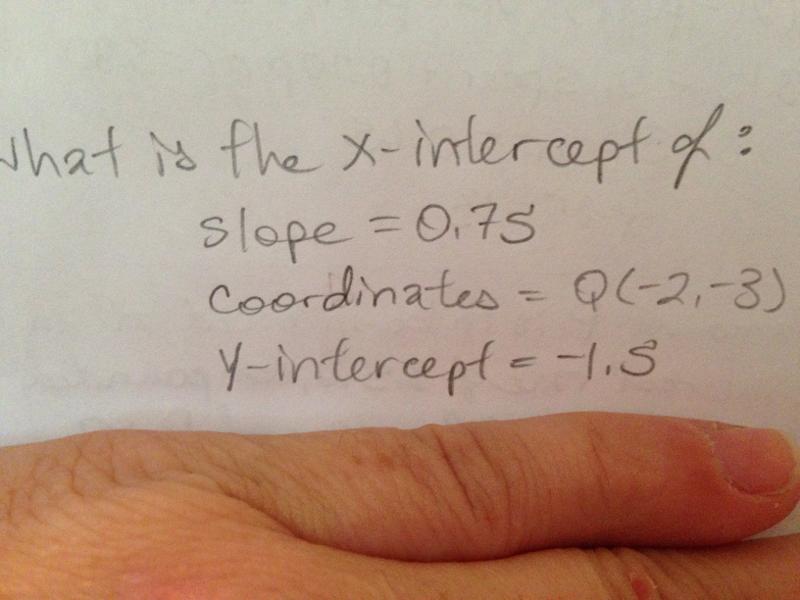 What is the x-intercept of:
slope = 0.75
coordinates = Q(-2,-3)
y-intercept = -1.5